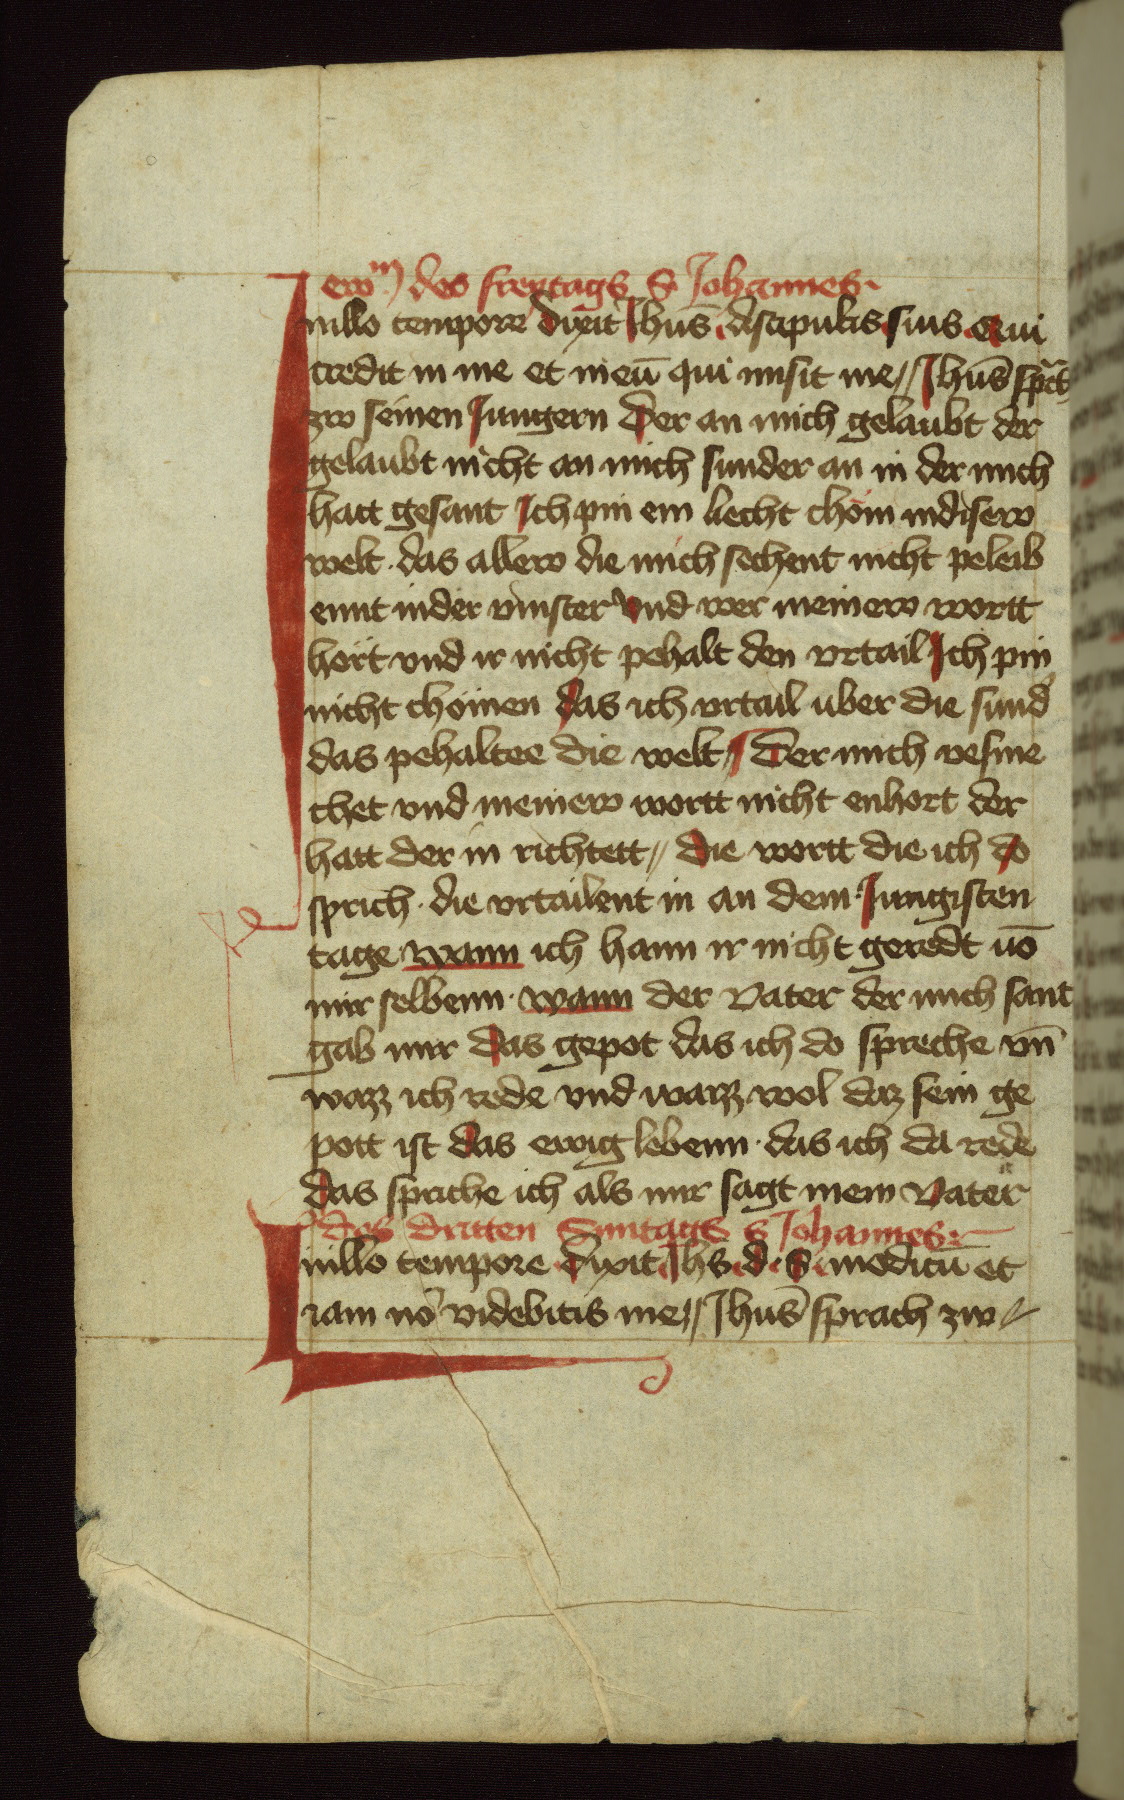 ewᵐ des freytags S Johannes
Inillo tempore dixit Jhus̄ discipulis suis Qui
credit in me et in eū qui misit me // Jhus̄ spᵃch
zw seinen Jungern Der an mich gelaubt der
gelaubt nicht an mich sunder an in der mich
hatt gesant Ich pin ein liecht chöm indisew
welt · das allew die mich sechent nicht peleib
ennt inder vinster Vnd wer meinew wortt
hört vnd ir nicht pehalt den vrtail Ich pin
nicht chömen das ich vrtail uber die sund
das pehaltee die welt // Der mich vesme
chet vnd meinew wortt nicht enhort der
hatt der in richtett // die wortt die ich do
sprich · die vrtailent in an dem Jungisten
tage wann ich hann ir nicht geredt uō
mir selbenn · wann der Vater der mich sant
gab mir das gepot das ich do spreche vn̄
wazz ich rede vnd waizz wol daz sein ge
pott ist das ewig lebenn · das ich da rede
das spriche ich als mir sagt mein Vater
des dritten Suntags S Johannes
Inillo tempore dixit Jhs · d · s · modicū et
iam nō videbitis me // Jhus̄ sprach zw